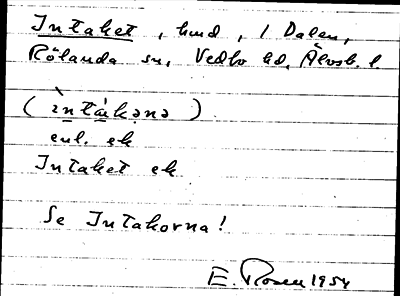 Intaket, hmd, i Dalen,
Rölanda sn, Vedbo hd, Älvsb. l.
(ìntá̀kənə)
enl. ek
Intaket ek
Se Intakorna!
E. Rosen 1954